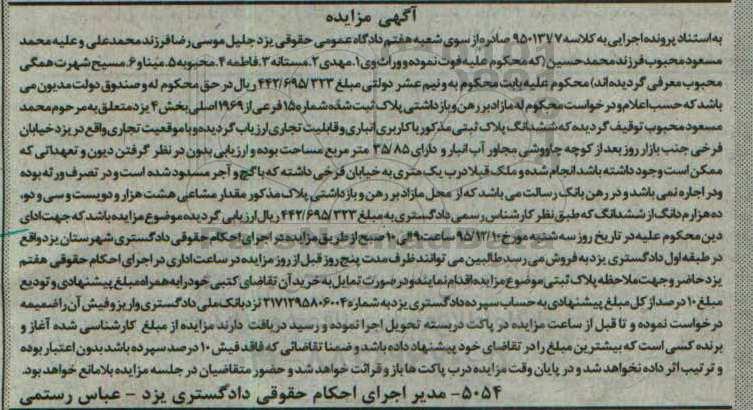 آگهی مزایده
به استناد پرونده اجرایی به کلاسه ۹۵۰۱۳۷/۷ صادره از سوی شعبه هفتم دادگاه عمومی حقوقی یزد جلیل موسی رضا فرزند محمدعلی و علیه محمد
مسعود محبوب فرزند محمدحسین (که محکوم علیه فوت نموده و وراث وی ۱. مهدی ۲. مستانه ۳. فاطمه ۴. محبوبه ۵. مینا و ۶. مسیح شهرت همگی
محبوب معرفی گردیده اند) محکوم علیه بابت محکوم به و نیم عشر دولتی مبلغ ۴۴۲/۶۹۵/۳۲۳ ریال در حق محکوم له و صندوق دولت مدیون می
باشد که حسب اعلام و درخواست محکوم له مازاد بر رهن و بازداشتی پلاک ثبت شده شماره ۱۵ فرعی از ۱۹۶۹ اصلی بخش ۴ یزد متعلق به مرحوم محمد
مسعود محبوب توقیف گردیده که ششدانگ پلاک ثبتی مذکور با کاربری انباری و قابلیت تجاری ارزیاب گردیده و با موقعیت تجاری واقع در یزد خیابان
فرخی جنب بازار روز بعد از کوچه چاووشی مجاور آب انبار و دارای ۳۵/۸۵ متر مربع مساحت بوده و ارزیابی بدون در نظر گرفتن دیون و تعهداتی که
ممکن است وجود داشته باشد انجام شده و ملک قبلا درب یک متری به خیابان فرخی داشته که با گچ و آجر مسدود شده است و در تصرف ورثه بوده
و در اجاره نمی باشد و در رهن بانک رسالت می باشد که از محل مازاد بر رهن و بازداشتی پلاک مذکور مقدار مشاعی هشت هزار و دویست و سی و دو،
ده هزارم دانگ از ششدانگ که طبق نظر کارشناس رسمی دادگستری به مبلغ ۴۴۲/۶۹۵/۳۲۳ ریال ارزیابی گردیده موضوع مزایده باشد که جهت ادای
دین محکوم علیه در تاریخ روز سه شنبه مورخ ۹۵/۱۲/۱۰ ساعت ۹ الی ۱۰ صبح از طریق مزایده در اجرای احکام حقوقی دادگستری شهرستان یزد واقع
در طبقه اول دادگستری یزد به فروش می رسد طالبین می توانند ظرف مدت پنج روز قبل از روز مزایده در ساعت اداری در اجرای احکام حقوقی هفتم
یزد حاضر و جهت ملاحظه پلاک ثبتی موضوع مزایده اقدام نمایند و در صورت تمایل به خرید آن تقاضای کتبی خود را به همراه مبلغ پیشنهادی و تودیع
مبلغ ۱۰ درصد از کل مبلغ پیشنهادی به حساب سپرده دادگستری یزد به شماره ۲۱۷۱۲۹۵۸۰۶۰۰۴ نزد بانک ملی دادگستری واریز و فیش آن را ضمیمه
درخواست نموده و تا قبل از ساعت مزایده در پاکت دربسته تحویل اجرا نموده و رسید دریافت دارند مزایده از مبلغ کارشناسی شده آغاز و
برنده کسی است که بیشترین مبلغ را در تقاضای خود پیشنهاد داده باشد و ضمنا تقاضائی که فاقد فیش ۱۰ درصد سپرده باشد بدون اعتبار بوده
و ترتیب اثر داده نخواهد شد و در پایان وقت مزایده درب پاکت ها باز و قرائت خواهد شد و حضور متقاضیان در جلسه مزایده بلامانع خواهد بود.
۵۰۵۴- مدیر اجرای احکام حقوقی دادگستری یزد - عباس رستمی